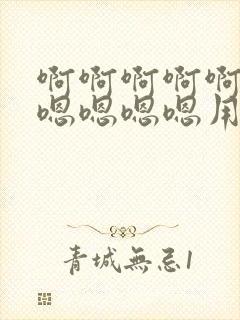 啊啊啊啊啊
嗯嗯嗯嗯用
青城無忌1